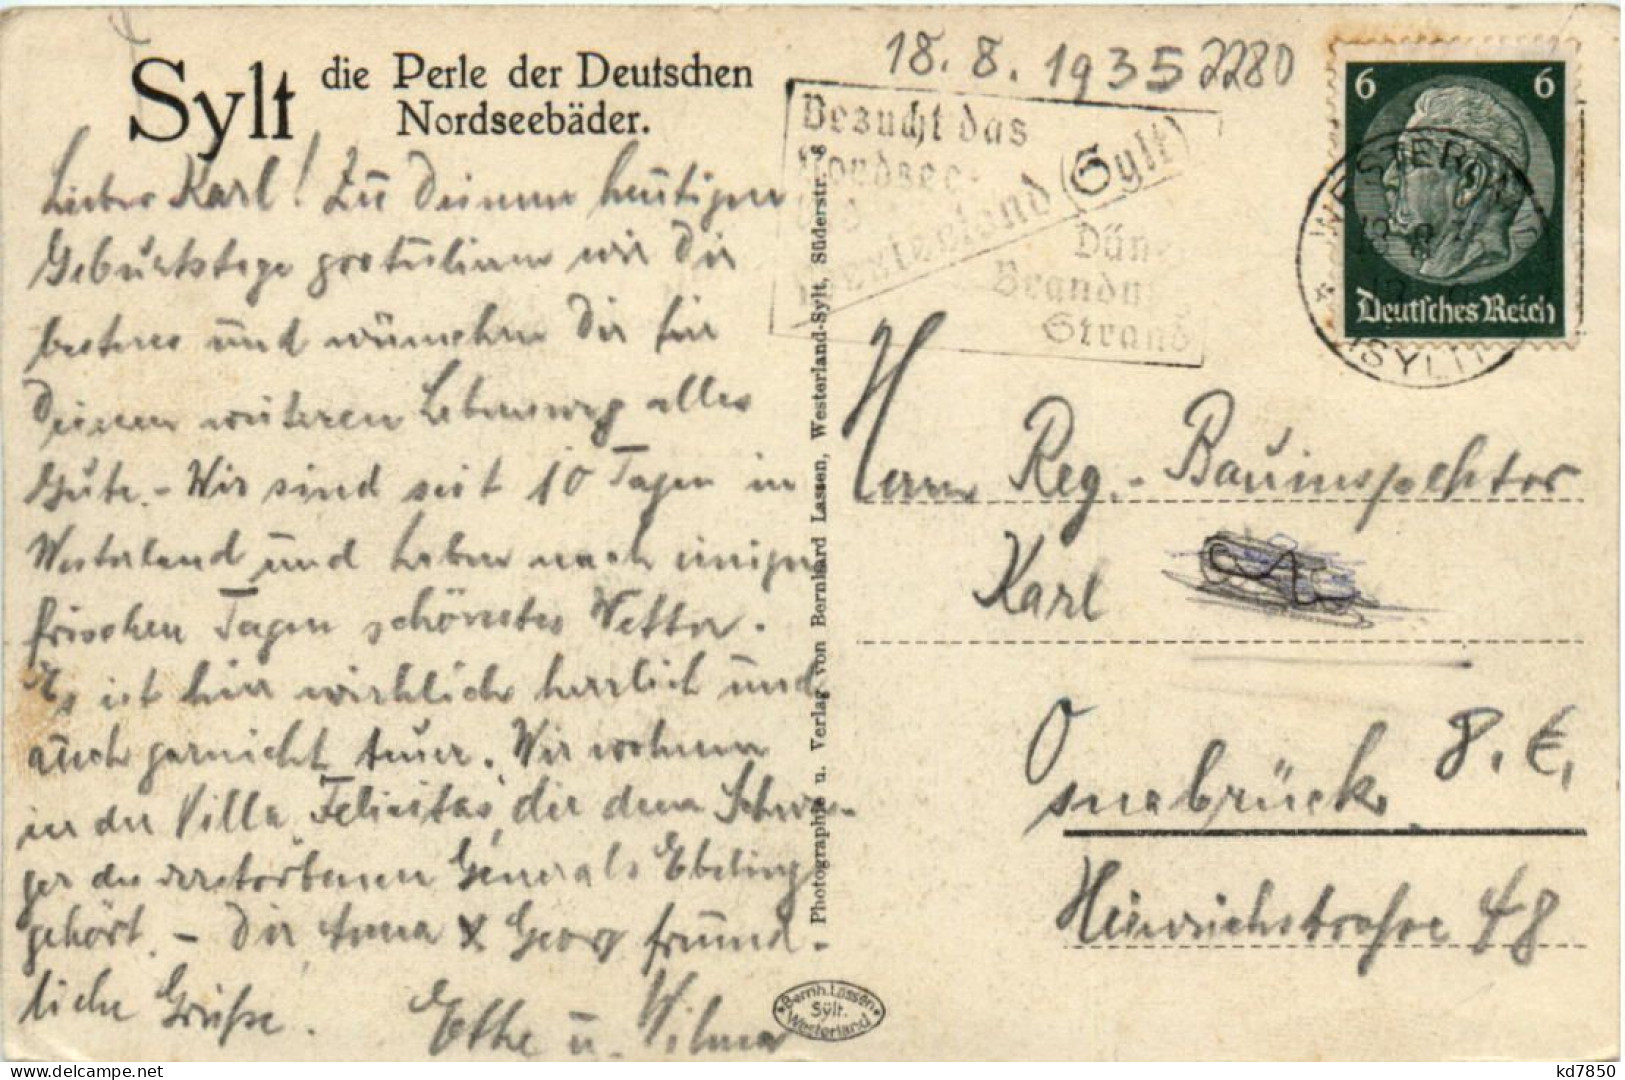 Sylt die Perle der Deutschen
Nordseebäder.
18.8.1935 2280
Besucht das
Nordsee-
Westerland (Sylt)
Düne
Brandung
Strand
6 6
Deutsches Reich
WESTERLAND
(SYLT)
Lieber Karl! Zu Deinem heutigen
Geburtstage gratulieren wir Dir
bestens und wünschen Dir für
Deinen weiteren Lebensweg alles
Gute. - Wir sind seit 10 Tagen in
Westerland und haben nach einigen
frischen Tagen schönstes Wetter.
Es ist hier wirklich herrlich und
auch garnicht teuer. Wir wohnen
in der Villa "Felicitas", die dem Schwa-
ger des verstorbenen Generals Ebeling
gehört. - Dir Anna & Georg freund-
liche Grüße. Ethe u. Wilma
Photographie u. Verlag von Bernhard Lassen, Westerland-Sylt, Süderstr.
Bernh. Lassen
Sylt.
Westerland
Herrn Reg.-Bauinspektor
Karl
Osnabrück
Heinrichstraße 48
kd7850